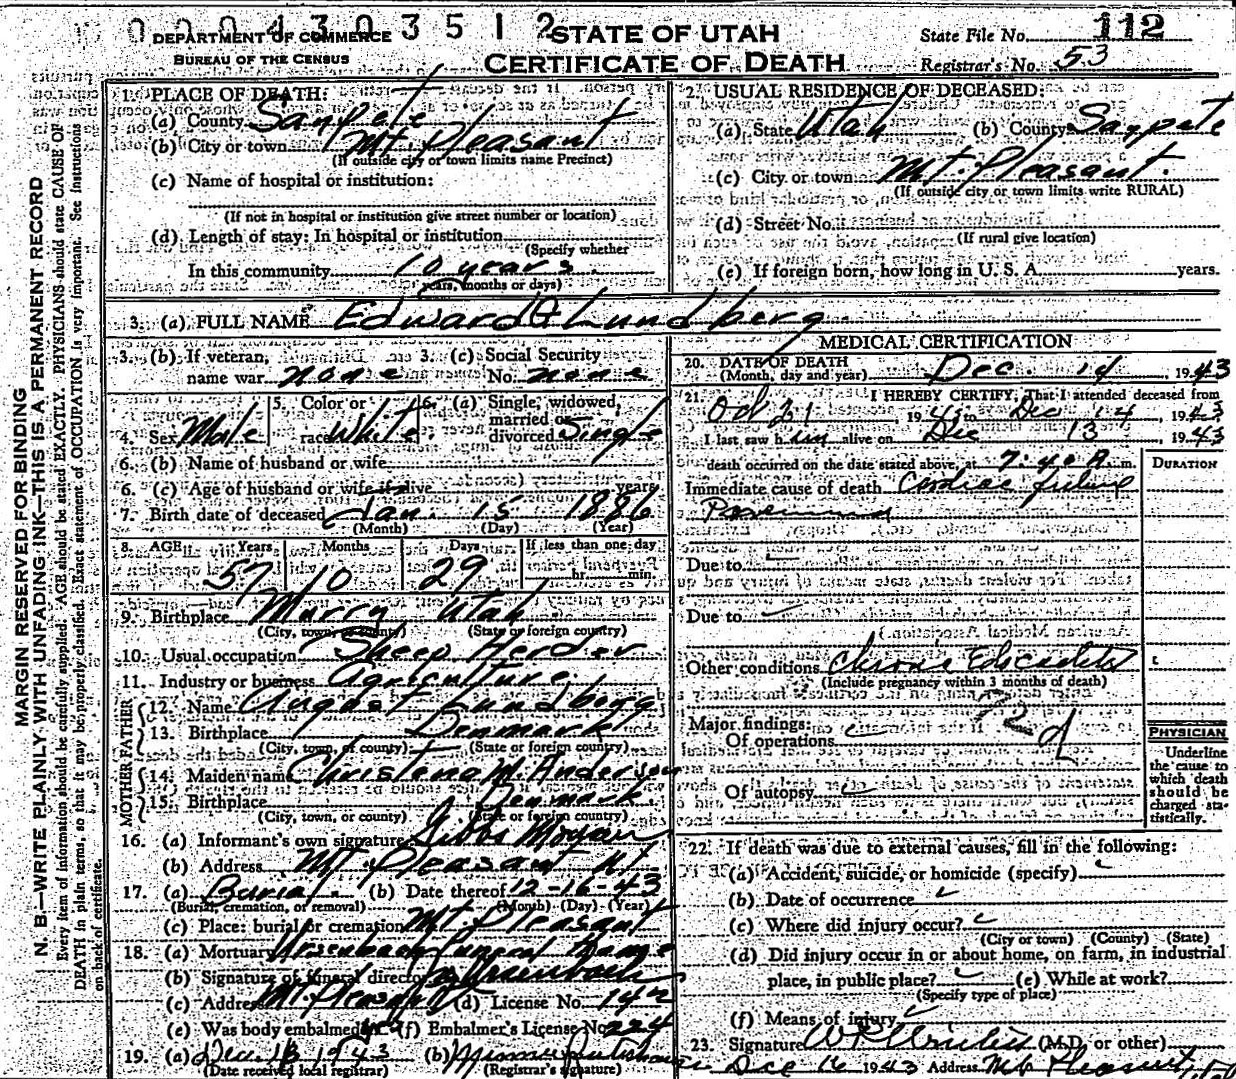 0004303512
DEPARTMENT OF COMMERCE
BUREAU OF THE CENSUS
STATE OF UTAH
CERTIFICATE OF DEATH
State File No. 112
Registrar's No. 53
MARGIN RESERVED FOR BINDING
N. B.—WRITE PLAINLY WITH UNFADING INK—THIS IS A PERMANENT RECORD
Every item of information should be carefully supplied. AGE should be stated EXACTLY. PHYSICIANS should state CAUSE OF
DEATH in plain terms, so that it may be properly classified. Exact statement of OCCUPATION is very important. See instructions
on back of certificate.
1. PLACE OF DEATH:
(a) County Sanpete
(b) City or town Mt. Pleasant
(If outside city or town limits name Precinct)
(c) Name of hospital or institution:
(If not in hospital or institution give street number or location)
(d) Length of stay: In hospital or institution
(Specify whether
In this community 10 years.
years, months or days)
2. USUAL RESIDENCE OF DECEASED:
(a) State Utah (b) County Sanpete
(c) City or town Mt. Pleasant.
(If outside city or town limits write RURAL)
(d) Street No.
(If rural give location)
(e) If foreign born, how long in U. S. A. years.
3. (a) FULL NAME Edward Lundberg
3. (b) If veteran,
name war none
3. (c) Social Security
No. none
4. Sex Male
5. Color or
race White.
6. (a) Single, widowed,
married or
divorced Single
6. (b) Name of husband or wife
6. (c) Age of husband or wife if alive years
7. Birth date of deceased Jan. 15 1886
(Month) (Day) (Year)
8. AGE Years Months Days If less than one day
57 10 29 hr. min.
9. Birthplace Murry Utah
(City, town, or county) (State or foreign country)
10. Usual occupation Sheep Herder
11. Industry or business Agriculture.
FATHER
12. Name August Lundberg
13. Birthplace Denmark
(City, town, or county) (State or foreign country)
MOTHER
14. Maiden name Christena M. Anderson
15. Birthplace Denmark.
(City, town, or county) (State or foreign country)
16. (a) Informant's own signature Gibbs Morgan
(b) Address Mt. Pleasant Ut
17. (a) Burial. (b) Date thereof 12-16-43
(Burial, cremation, or removal) (Month) (Day) (Year)
(c) Place: burial or cremation Mt. Pleasant
18. (a) Mortuary Ursenbach Funeral Home
(b) Signature of funeral director Ursenbach
(c) Address Mt. Pleasant (d) License No. 142
(e) Was body embalmed (f) Embalmer's License No. 224
19. (a) Dec. 18 1943 (b)
(Date received local registrar) (Registrar's signature)
MEDICAL CERTIFICATION
20. DATE OF DEATH
(Month, day and year) Dec. 14, 1943
21. I HEREBY CERTIFY, That I attended deceased from
Oct 21 1943 to Dec 14, 1943
I last saw him alive on Dec 13, 1943
death occurred on the date stated above, at 7:40 A. m.
DURATION
Immediate cause of death Cardiac failure
Due to
Due to
Other conditions Chronic
(Include pregnancy within 3 months of death)
92d
Major findings:
Of operations
Of autopsy
PHYSICIAN
Underline
the cause to
which death
should be
charged sta-
tistically.
22. If death was due to external causes, fill in the following:
(a) Accident, suicide, or homicide (specify)
(b) Date of occurrence
(c) Where did injury occur?
(City or town) (County) (State)
(d) Did injury occur in or about home, on farm, in industrial
place, in public place? (e) While at work?
(Specify type of place)
(f) Means of injury
23. Signature (M.D. or other)
Dec 16 1943 Address Mt Pleasant,